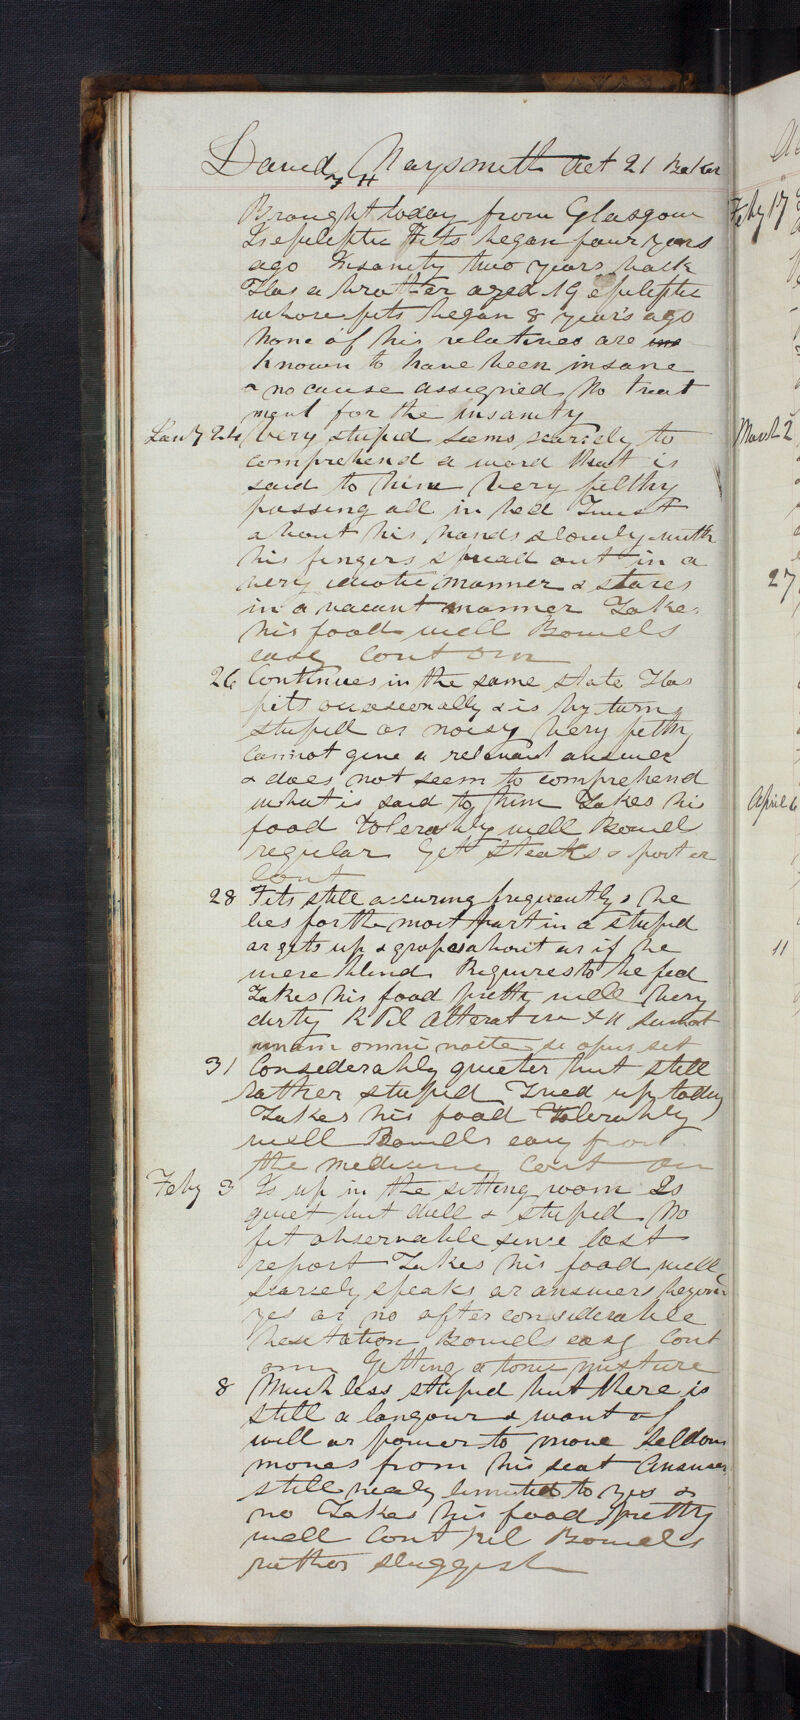 David Naysmith Aet 21 Baker
Brought today from Glasgow
Is epileptic Fits began four years
ago Insanity two years back
Has a brother aged 19 epileptic
whose fits began 8 years ago
None of his relatives are ins
known to have been insane
& no cause assigned No treat
ment for the insanity
Jany 24 Very stupid seems scarcely to
comprehend a word that is
said to him Very filthy
passing all in bed Twist
about his hands slowly with
his fingers spread out in a
very idiotic manner & stares
in a vacant manner Takes
his food well Bowels
easy Cont omn
26 Continues in the same state Has
fits occasionally & is by turns
stupid or noisy Very filthy
Cannot give a relevant answer
& does not seem to comprehend
what is said to him Takes his
food tolerably well Bowels
regular Gets steaks & porter
Cont
28 Fits still occuring frequently & he
lies for the most part in a stupid
or gets up & gropes about as if he
were blind Requires to be fed
Takes his food pretty well Very
dirty R Pil Alterative sumat
unam omni nocte si opus sit
31 Considerably quieter but still
rather stupid Tried up today
Takes his food tolerably
well Bowels easy from
the medicine Cont omn
Feby 3 Is up in the sitting room Is
quiet but dull & stupid No
fit observable since last
report Takes his food well
Scarcely speaks or answers beyond
yes or no after considerable
hesitation Bowels easy Cont
omn Getting a tonic mixture
8 Much less stupid but there is
still a langour & want of
will or power to move Seldom
moves from his seat Answers
still nearly limited to yes &
no Takes his food pretty
well Cont Pil Bowels
rather sluggish
Feby 17
March 2
27
April 6
11